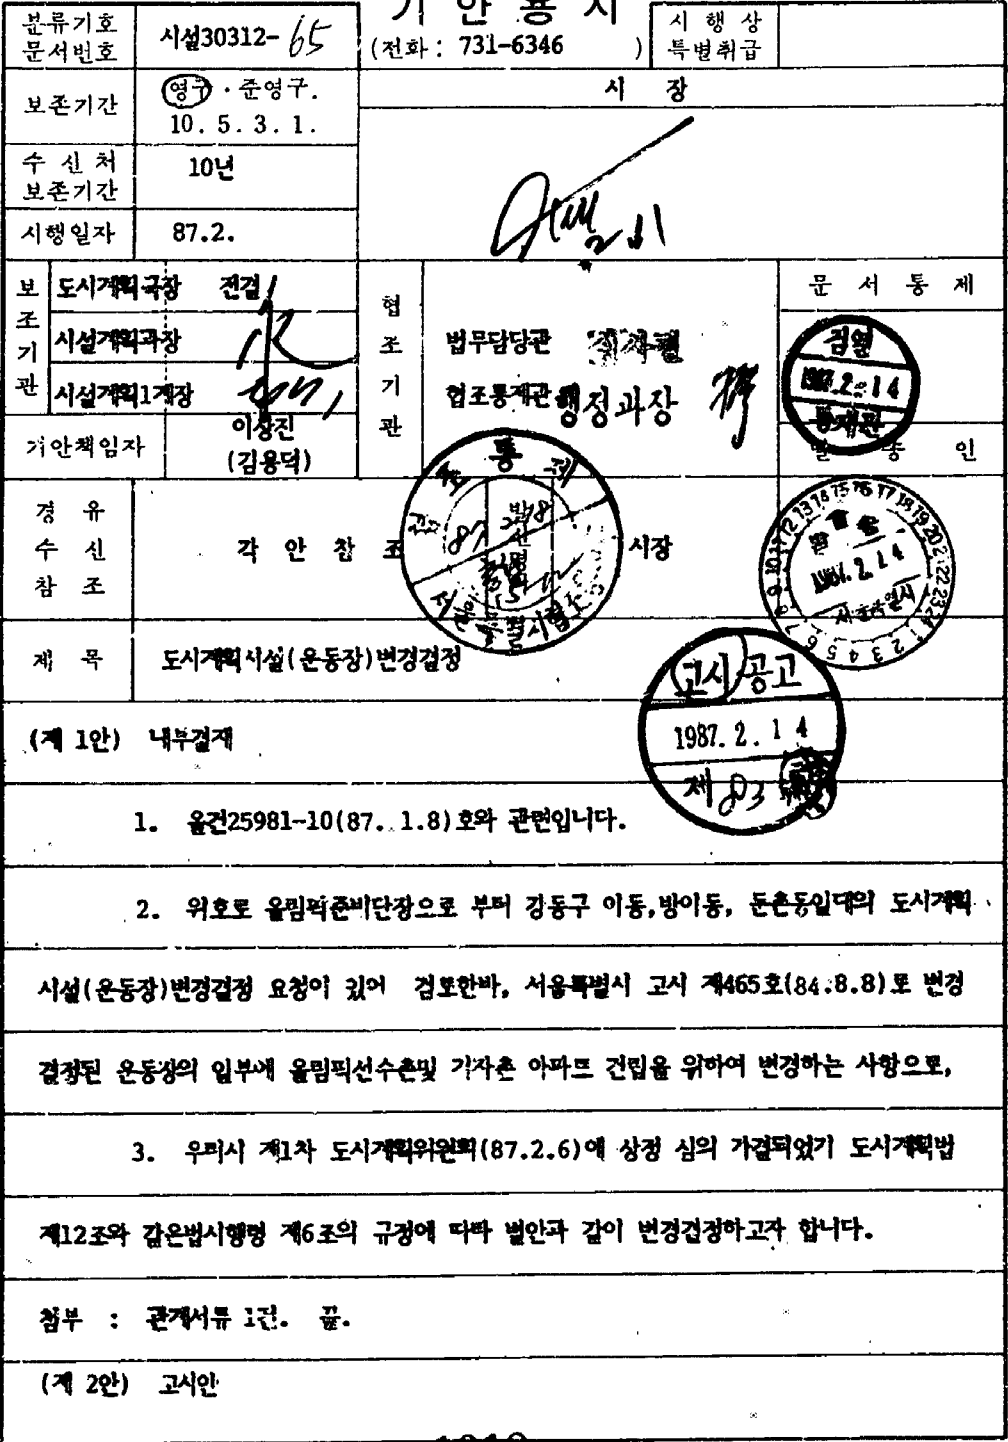 기 안 용 지
분류기호
문서번호
시설30312-65
(전화 : 731-6346 )
시 행 상
특별취급
보존기간
영구 · 준영구.
10. 5. 3. 1.
시 장
수 신 처
보존기간
10년
시행일자
87.2.
보조기관
도시계획국장 전결
시설계획과장
시설계획1계장
협조기관
법무담당관
협조통제관 행정과장
문 서 통 제
검열
1987.2.14
통제관
기안책임자
이상진
(김용덕)
발 송 인
경 유
수 신
참 조
각 안 참 조
시장
협조통제
서울특별시협조
발송
1987.2.14
서울특별시
제 목
도시계획시설(운동장)변경결정
고시 공고
1987. 2. 1 4
제 83
(제 1안) 내부결재
1. 올건25981-10(87. 1.8)호와 관련입니다.
2. 위호로 올림픽준비단장으로 부터 강동구 이동,방이동, 둔촌동일대의 도시계획
시설(운동장)변경결정 요청이 있어 검토한바, 서울특별시 고시 제465호(84.8.8)로 변경
결정된 운동장의 일부에 올림픽선수촌및 기자촌 아파트 건립을 위하여 변경하는 사항으로,
3. 우리시 제1차 도시계획위원회(87.2.6)에 상정 심의 가결되었기 도시계획법
제12조와 같은법시행령 제6조의 규정에 따라 별안과 같이 변경결정하고자 합니다.
첨부 : 관계서류 1건. 끝.
(제 2안) 고시안